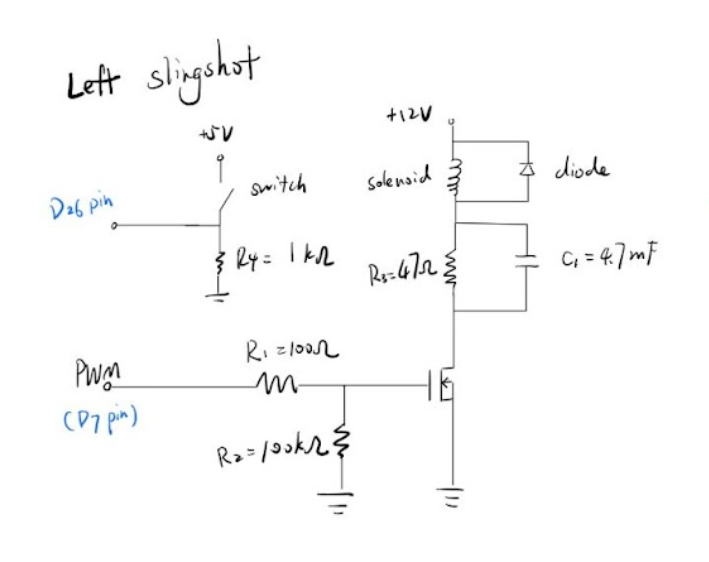 Left slingshot
+5V
switch
D26 pin
R4 = 1kΩ
+12V
solenoid
diode
R3=47Ω
C1 = 4.7mF
R1=100Ω
PWM
(D7 pin)
R2=100kΩ